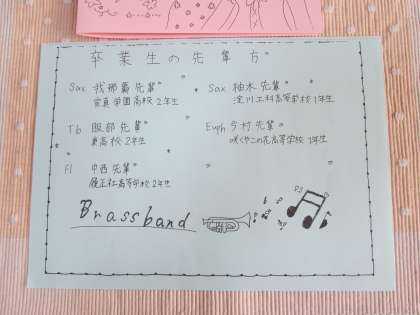 卒業生の先輩方
Sax 我那覇先輩
宣真学園高校2年生
Sax 柚木先輩
淀川工科高等学校1年生
Tb 服部先輩
東高校2年生
Euph 今村先輩
咲くやこの花高等学校1年生
Fl 中西先輩
履正社高等学校2年生
Brassband